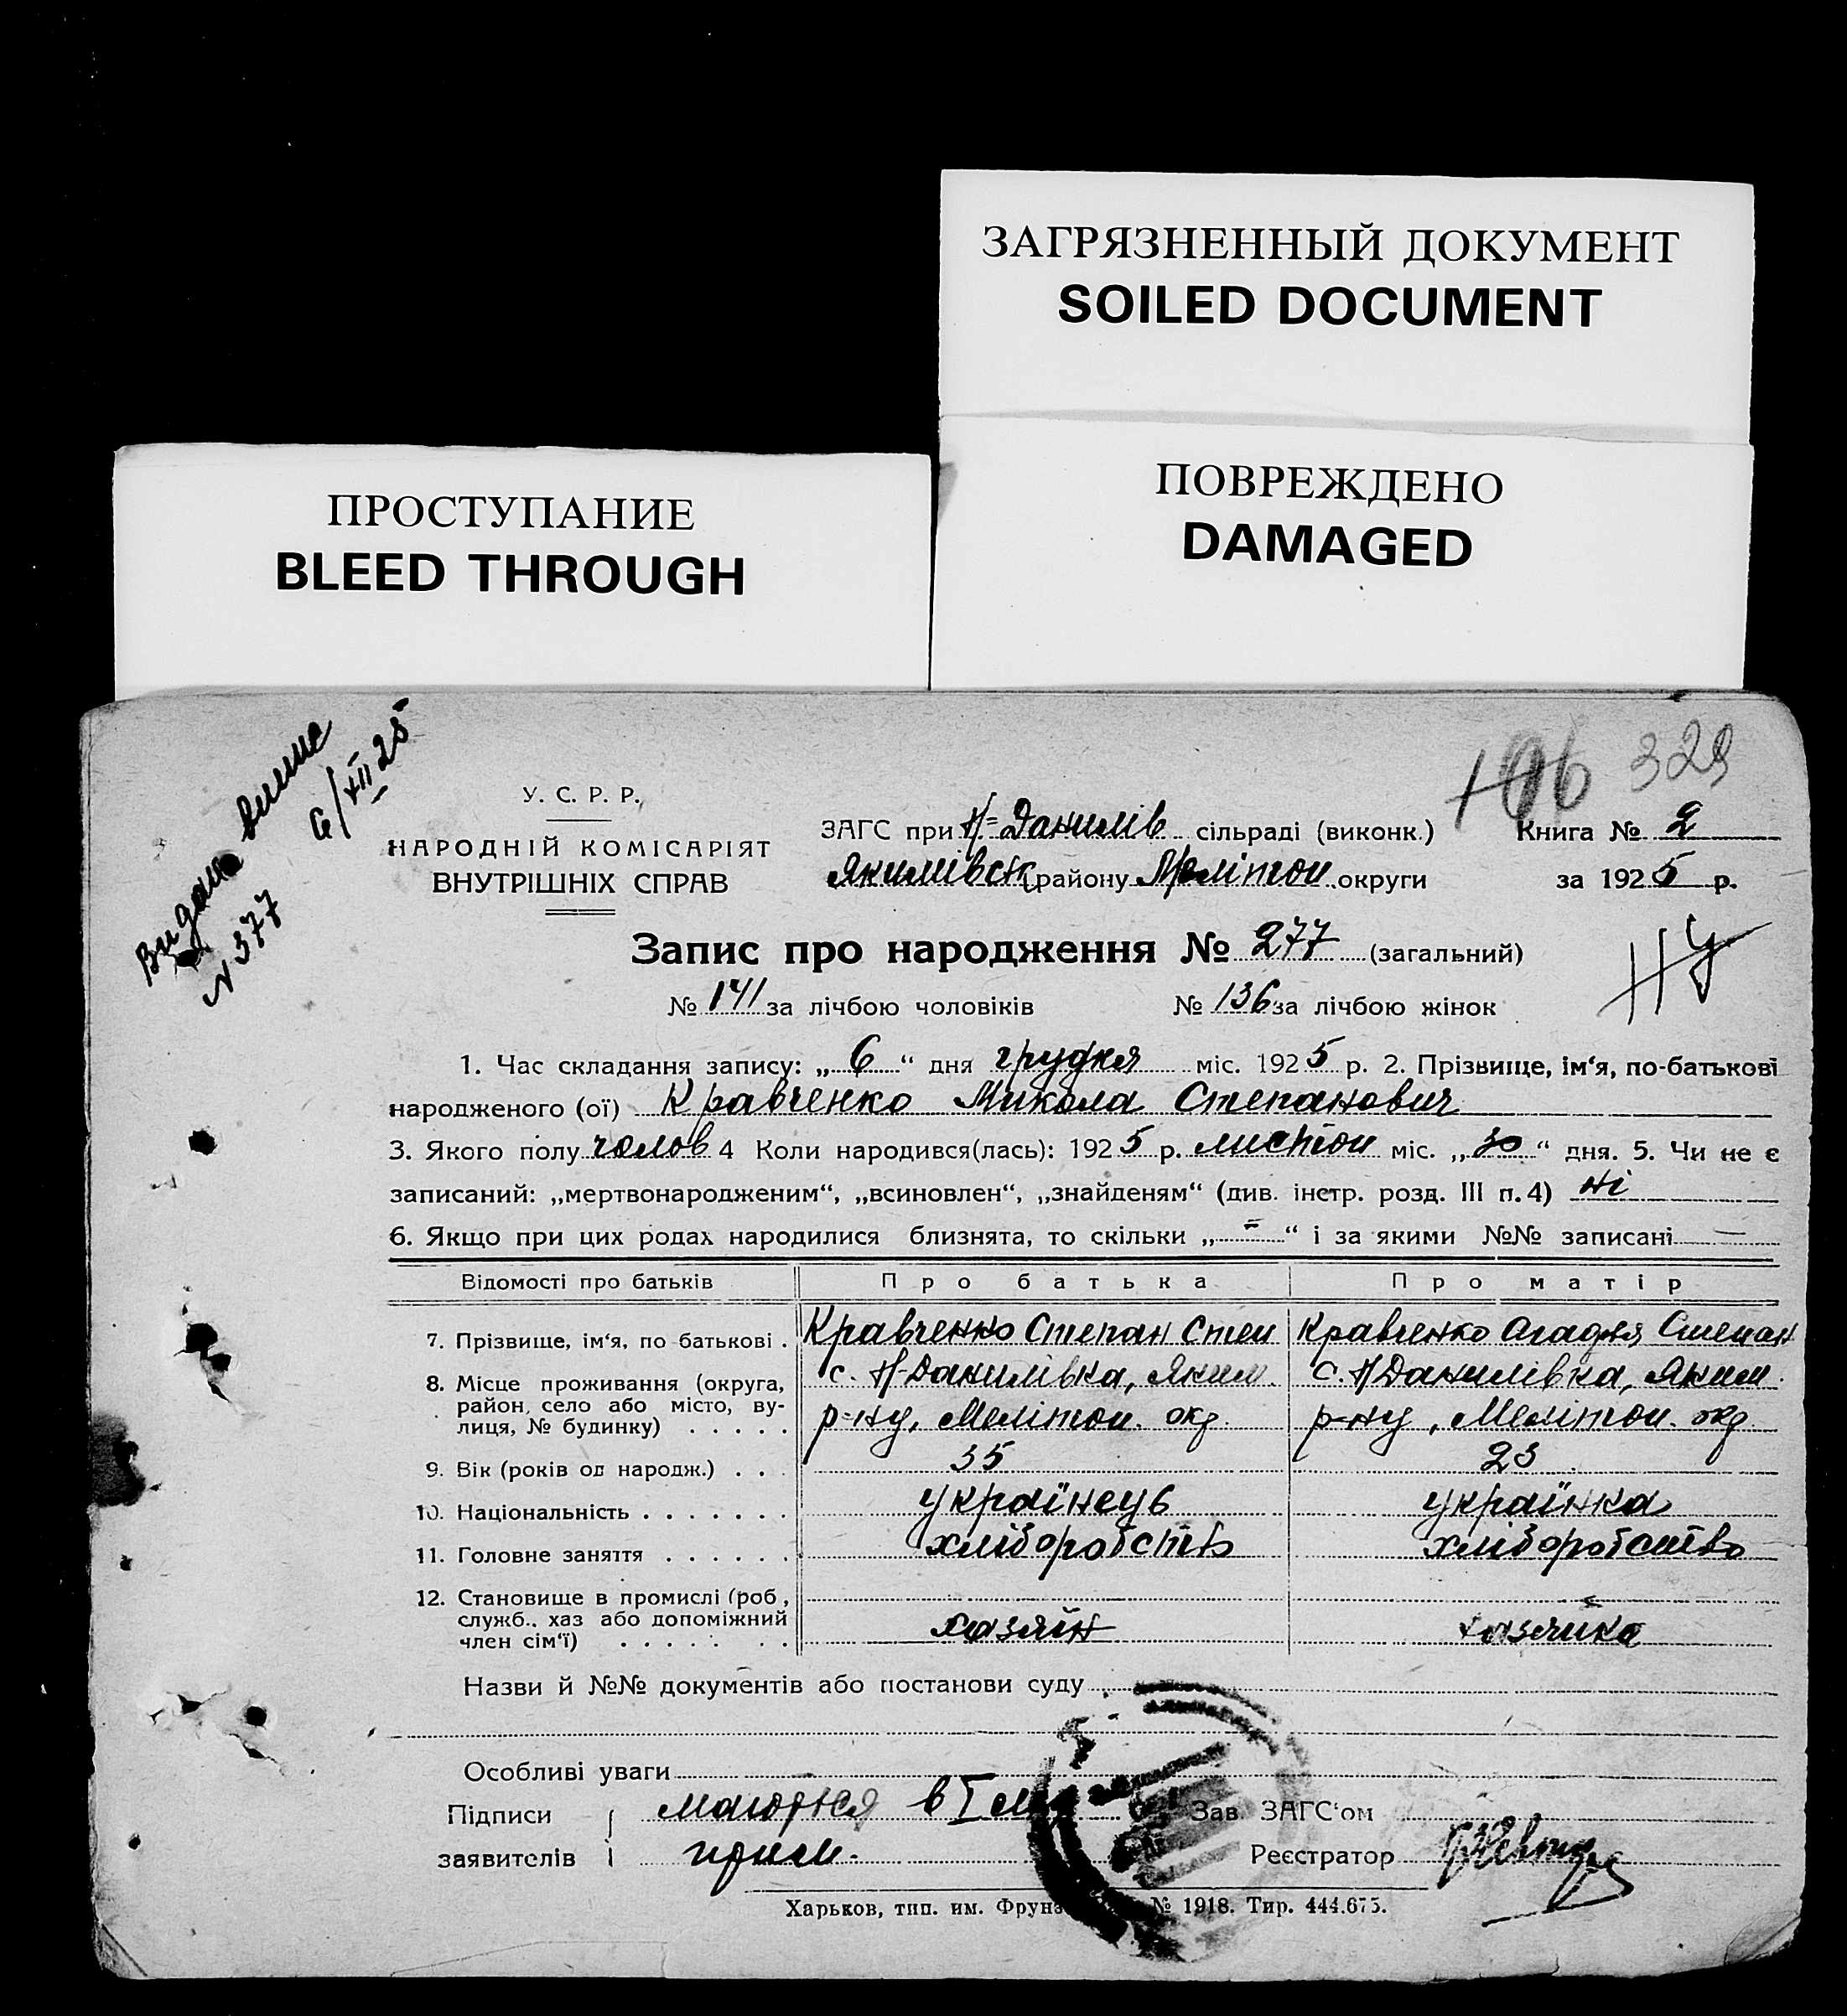 ЗАГРЯЗНЕННЫЙ ДОКУМЕНТ
SOILED DOCUMENT
ПРОСТУПАНИЕ
BLEED THROUGH
ПОВРЕЖДЕНО
DAMAGED
Видана виписка
№ 377
6/XII 25
329
У. С. Р. Р.
НАРОДНІЙ КОМІСАРІЯТ
ВНУТРІШНІХ СПРАВ
ЗАГС при Н-Данилів сільраді (виконк.) Книга № 2
Якимівськ району Мелітоп округи за 1925 р.
Запис про народження № 277 (загальний)
№ 141 за лічбою чоловіків № 136 за лічбою жінок
1. Час складання запису: „ 6 “ дня грудня міс. 1925 р. 2. Прізвище, ім‘я, по-батькові
народженого (ої) Кравченко Микола Степанович
3. Якого полу чолов 4 Коли народився(лась): 1925 р. листоп міс. „ 30 “ дня. 5. Чи не є
записаний: „мертвонародженим“, „всиновлен“, „знайденям“ (див. інстр. розд. III п. 4) ні
6. Якщо при цих родах народилися близнята, то скільки „ - “ і за якими №№ записані —
Відомості про батьків Про батька Про матір
7. Прізвище, ім‘я, по батькові . Кравченко Степан Степ Кравченко Агафія Степан
8. Місце проживання (округа, с. Н-Данилівка, Яким. с. Н Данилівка, Яким.
район, село або місто, ву-
лиця, № будинку) . . . . . р-ну, Мелітоп. окр. р-ну, Мелітоп. окр
9. Вік (років од народж.) . . . 35 23
10. Національність . . . . . . . українець українка
11. Головне заняття . . . . . . хліборобств хліборобство
12. Становище в промислі (роб,
служб.. хаз або допоміжний
член сім‘ї) . . . . . . . хазяїн хазяйка
Назви й №№ документів або постанови суду
Особливі уваги
Підписи Зав ЗАГС‘ом
заявителів прим. Реєстратор
Харьков, тип. им. Фрунз № 1918. Тир. 444.675.